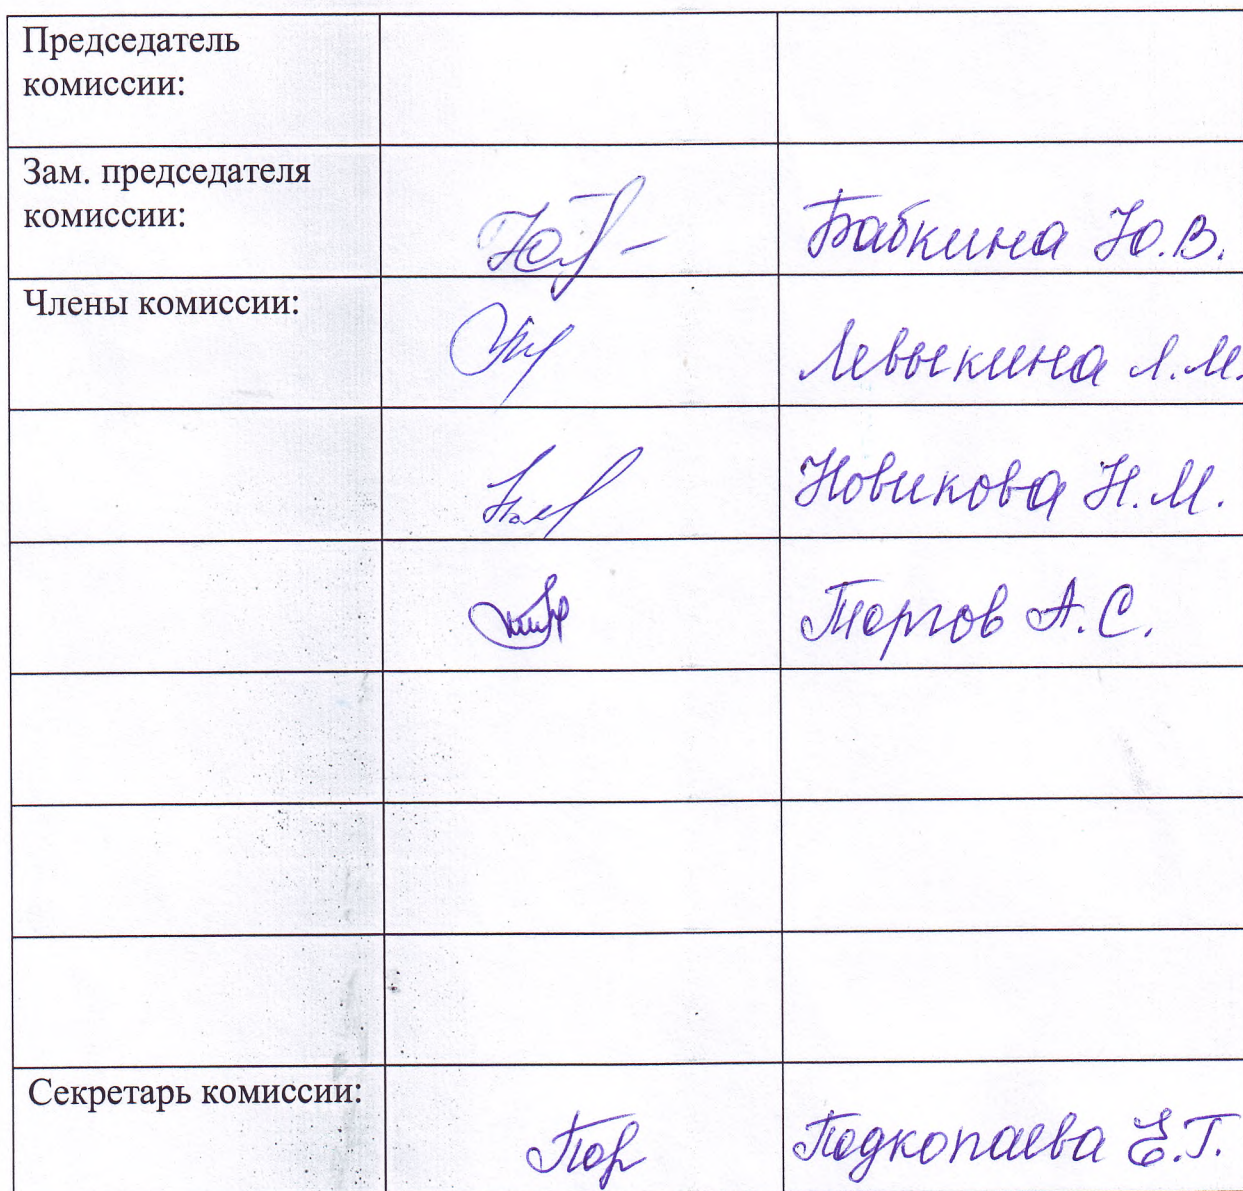 Председатель
комиссии:
Зам. председателя
комиссии:
Бабкина Ю.В.
Члены комиссии:
Левыкина Л.М.
Новикова Н.М.
Торгов А.С.
Секретарь комиссии:
Подкопаева Е.Г.